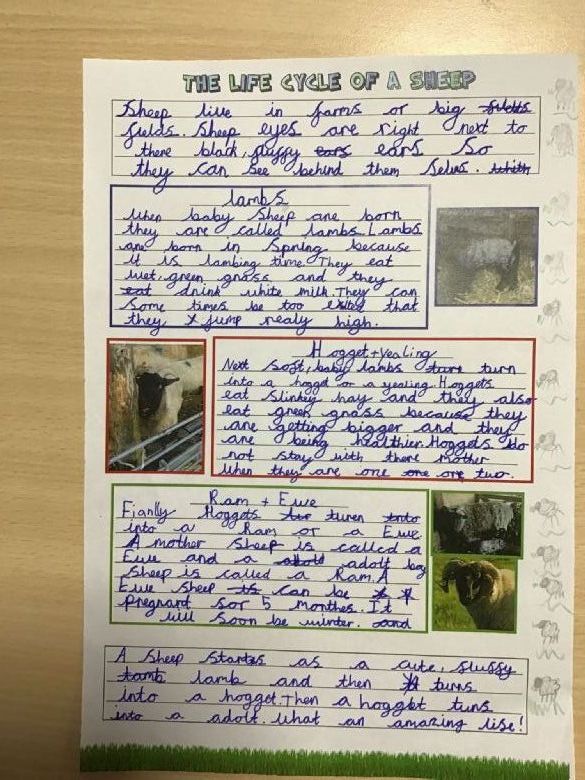 THE LIFE CYCLE OF A SHEEP
Sheep live in farms or big fields
fields. Sheep eyes are right next to
there black, fluffy ears ears so
they can see behind them selvs. whith
lambs
When baby Sheep are born
they are called lambs. Lambs
are born in Spring because
it is lambing time. They eat
wet, green grass and they
eat drink white milk. They can
some times be too exited that
they jump realy high.
Hogget + yealing
Next soft, baby lambs turn turn
into a hogget or a yealing. Hoggets
eat Slinkey hay and they also
eat green grass because they
are getting bigger and they
are being healthier. Hoggets do
not stay with there mother
when they are one one or two.
Ram + Ewe
Fianlly Hoggets turen into
into a Ram or a Ewe.
A mother sheep is called a
Ewe and a adolt adolt boy
sheep is called a Ram. A
Ewe sheep is can be
pregnant for 5 monthes. It
will soon be winter. and
A sheep startes as a cute, fluffy
lamb lamb and then turns
into a hogget. Then a hogget tuns
into a adolt. What an amazing life!